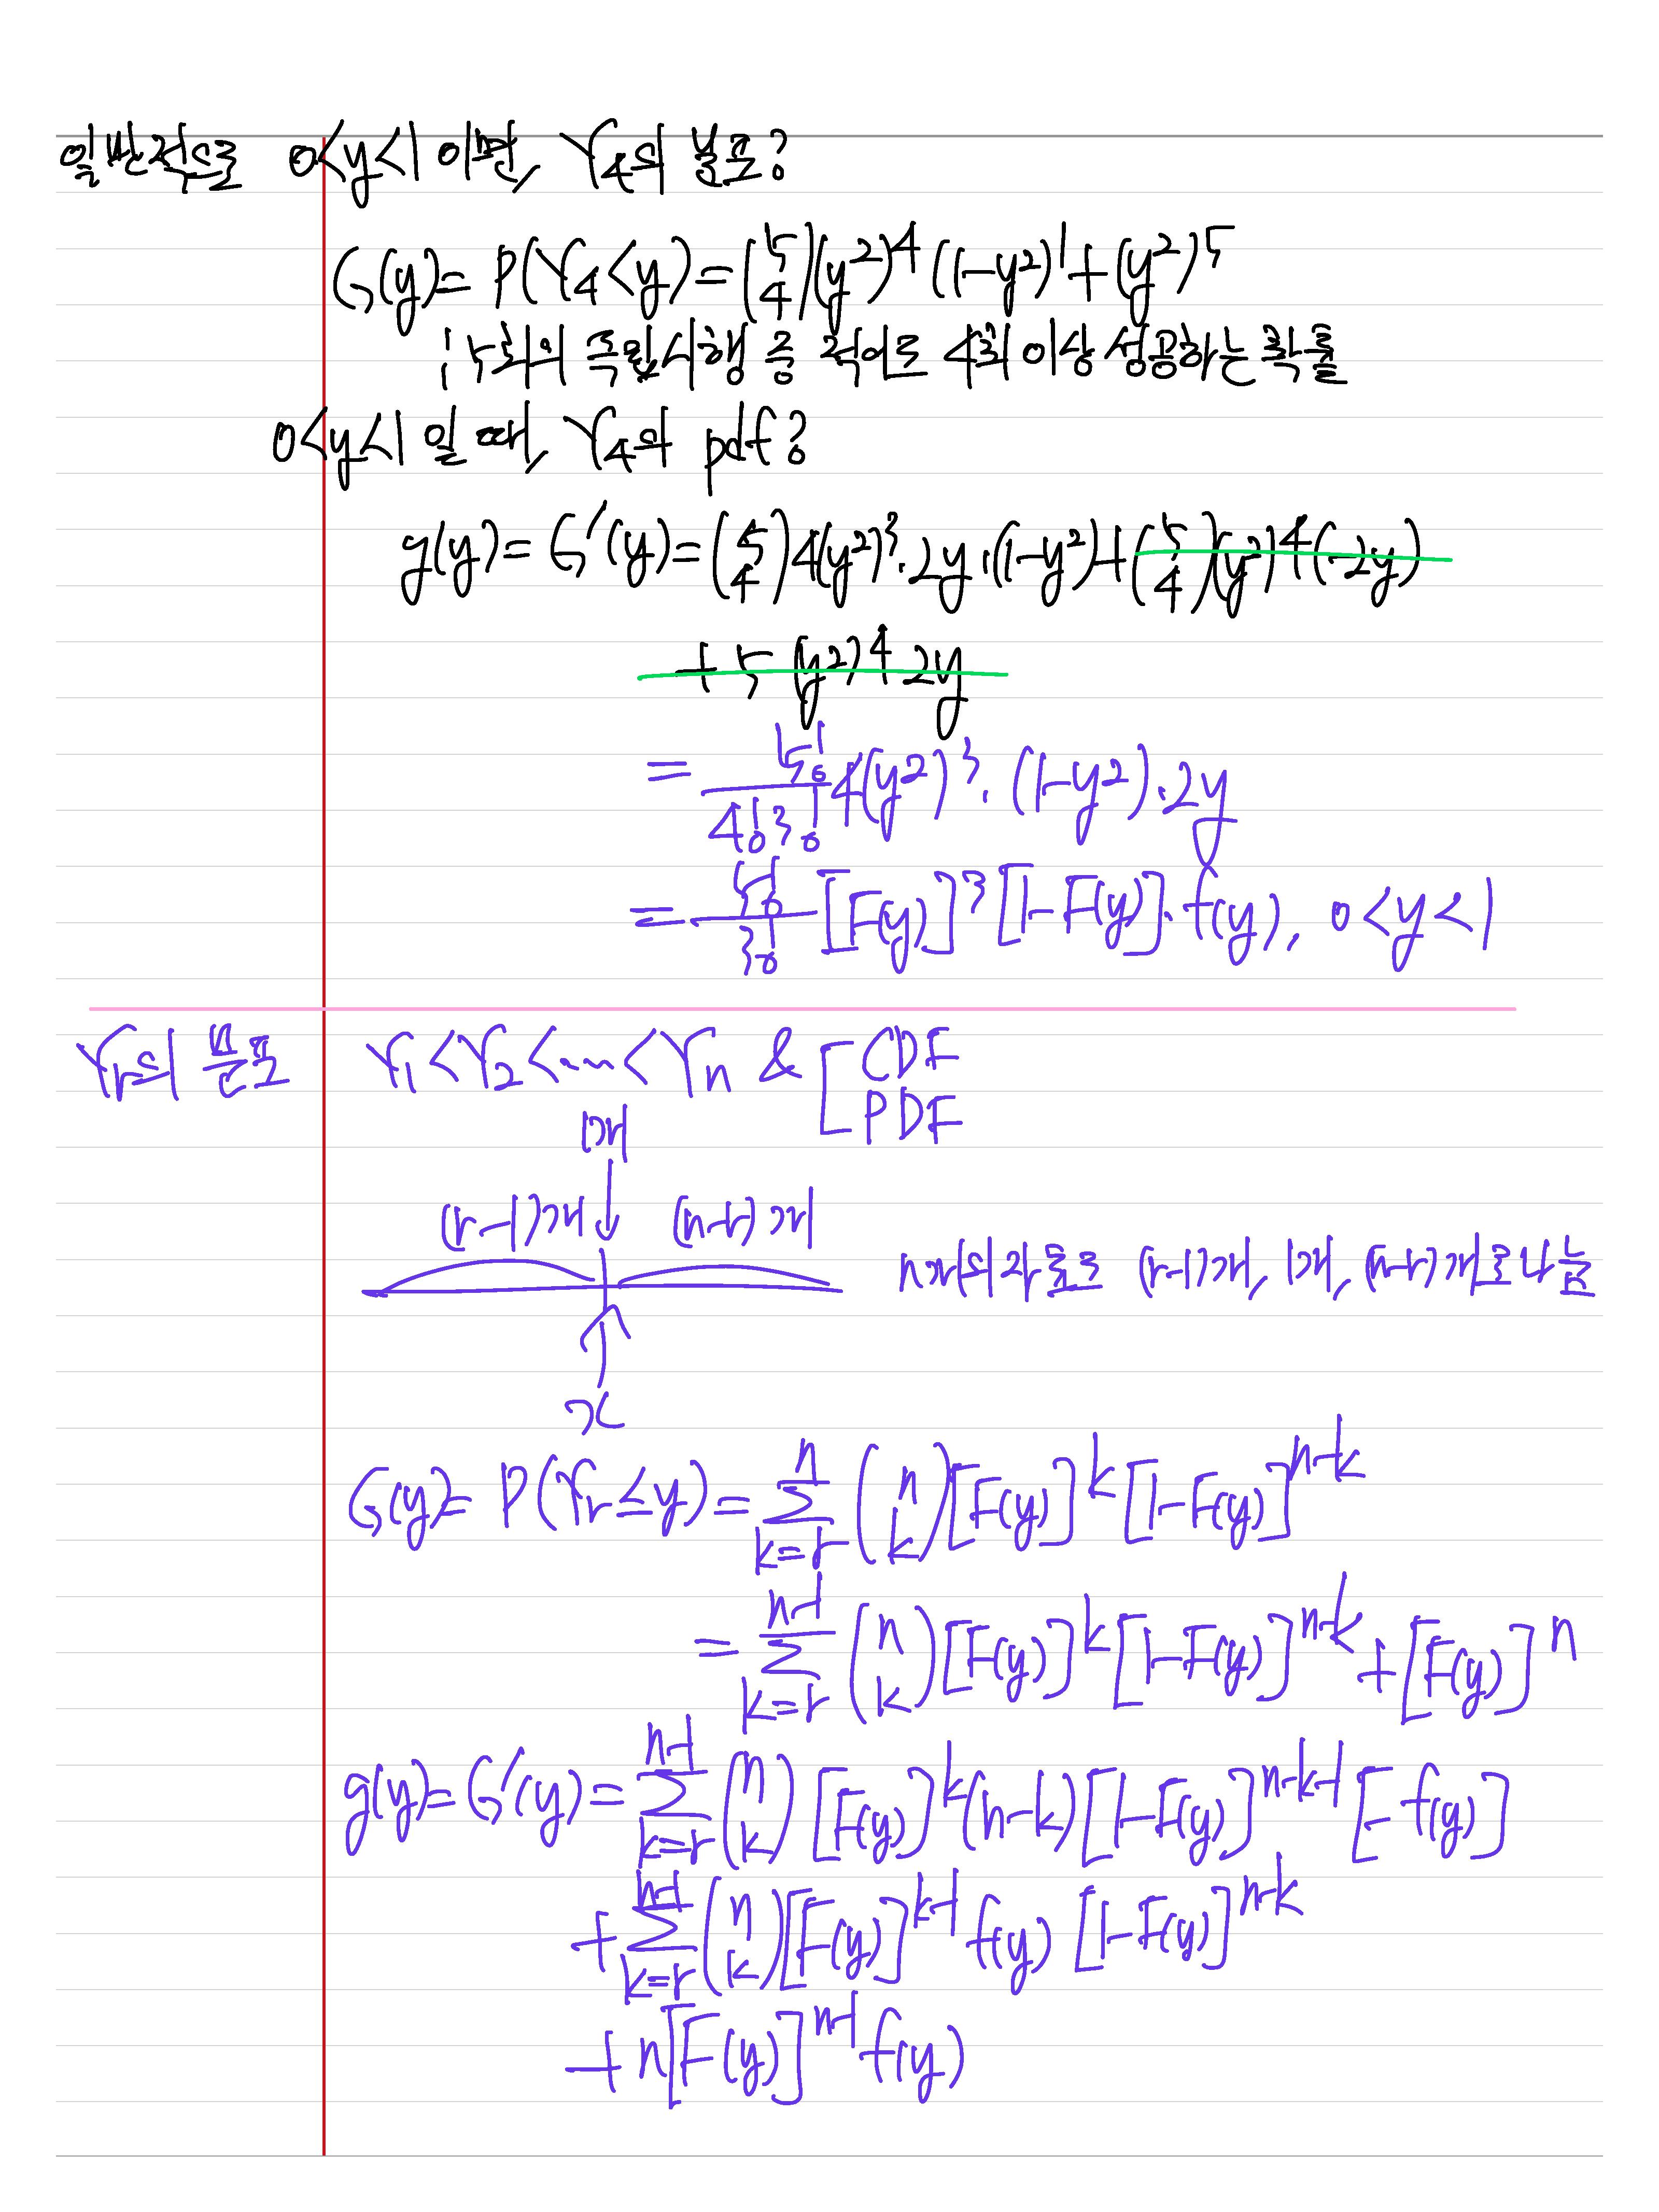 일반적으로 0<y<1 이면, Y₄의 분포?
G(y)= P(Y₄<y)=(5 4)(y²)⁴(1-y²)¹+(y²)⁵
: 5회의 독립시행 중 적어도 4회 이상 성공하는 확률
0<y<1 일 때, Y₄의 pdf?
g(y)= G′(y)=(5 4)4(y²)³·2y·(1-y²)+(5 4)(y²)⁴(-2y)
+5 (y²)⁴ 2y
= 5!/4!3! 4(y²)³·(1-y²)·2y
= 5!/3! [F(y)]³[1-F(y)]·f(y), 0<y<1
Yr의 분포 Y₁<Y₂<...<Yn & [ CDF
PDF
1개
(r-1)개 (n-r)개
n개의 자료를 (r-1)개, 1개, (n-r)개로 나눔
x
G(y)= P(Yr≤y)= Σ_{k=r}^{n} (n k)[F(y)]^k [1-F(y)]^{n-k}
= Σ_{k=r}^{n-1} (n k)[F(y)]^k [1-F(y)]^{n-k} + [F(y)]^n
g(y)= G′(y)= Σ_{k=r}^{n-1} (n k)[F(y)]^k (n-k)[1-F(y)]^{n-k-1} [-f(y)]
+ Σ_{k=r}^{n-1} (n k)[F(y)]^{k-1} f(y) [1-F(y)]^{n-k}
+ n[F(y)]^{n-1} f(y)